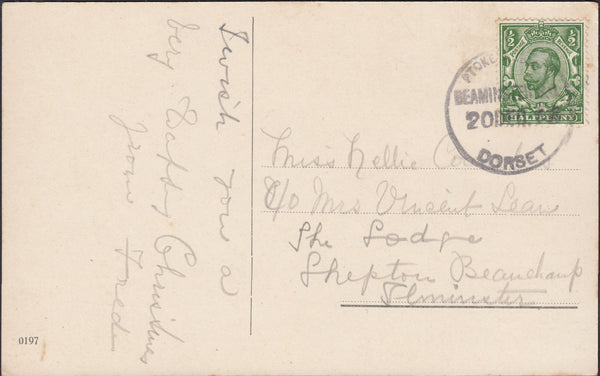 I wish you a
very Happy Christmas
from Fred
0197
½ ½
HALFPENNY
STOKE
BEAMIN
20
DORSET
Miss Nellie
C/O Mrs Vincent Lean
The Lodge
Shepton Beauchamp
Ilminster